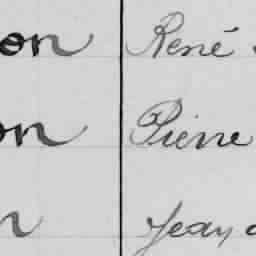 on René
on Pierre
n Jean